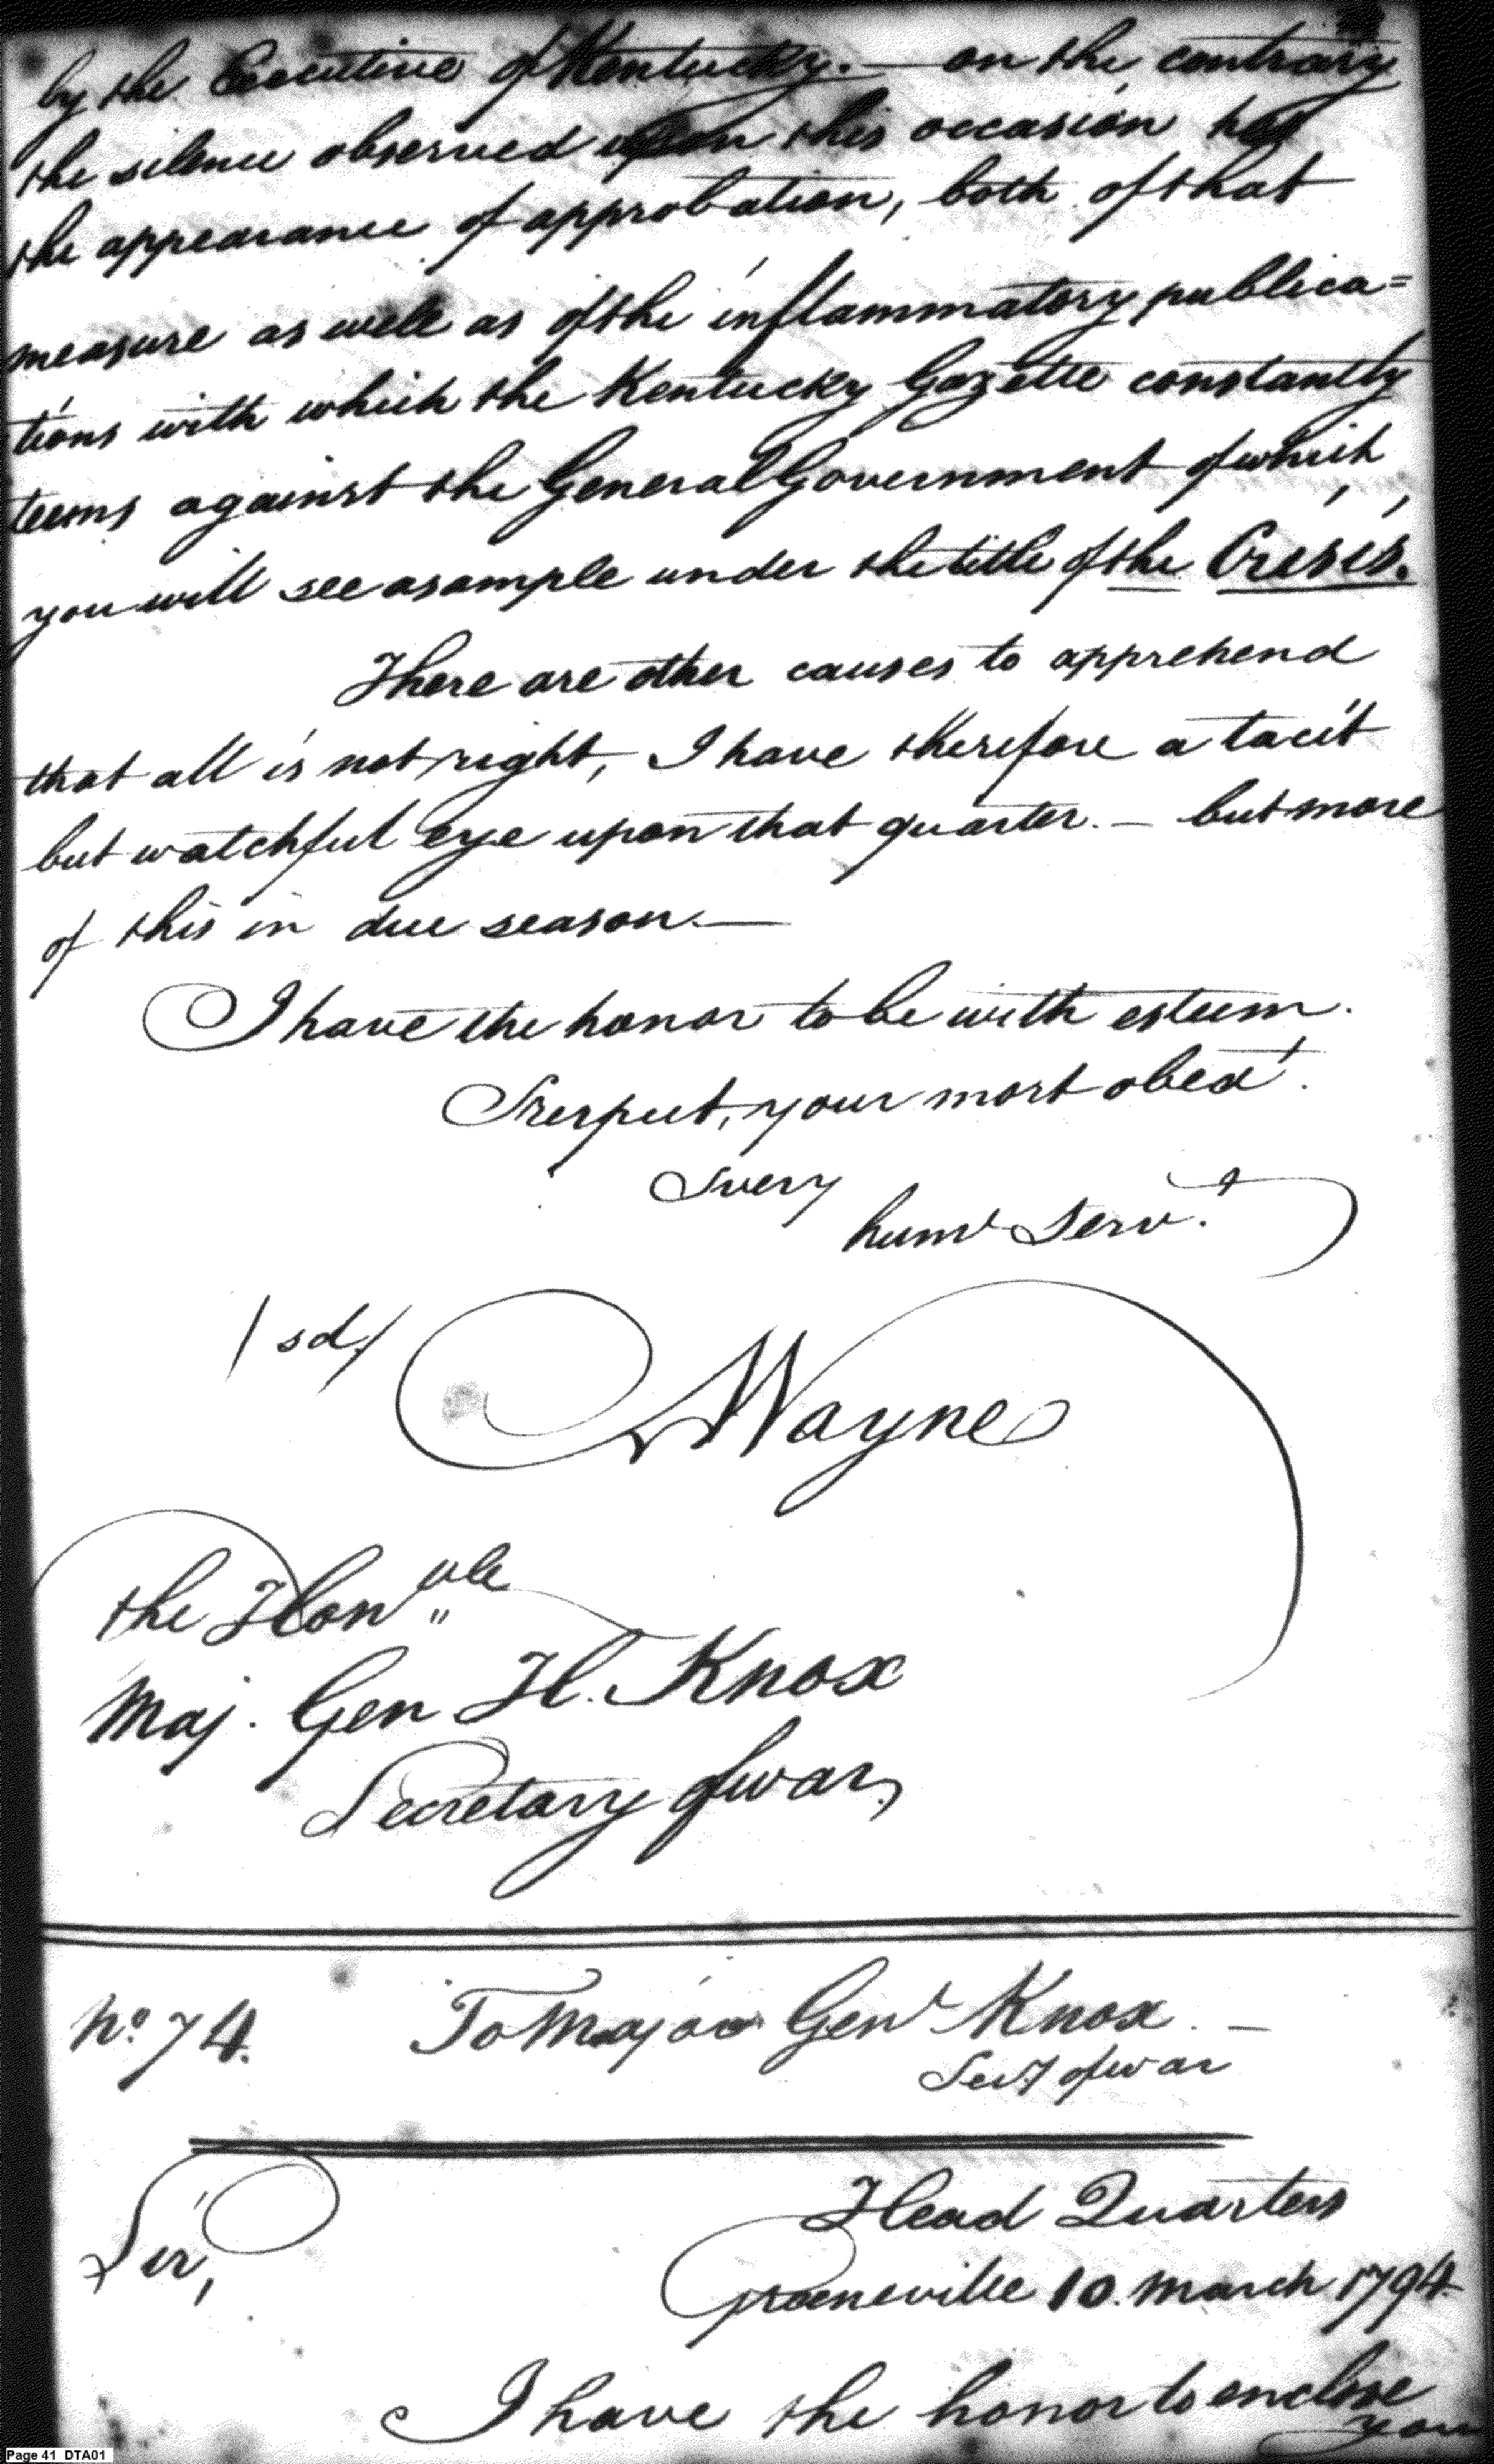 by the Executive of Kentucky. — on the contrary
the silence observed upon this occasion has
the appearance of approbation, both of that
measure as well as of the inflammatory publica=
tions with which the Kentucky Gazette constantly
teems against the General Government of which
you will see a sample under the title of the Crisis.
There are other causes to apprehend
that all is not right, I have therefore a tacit
but watchful eye upon that quarter. — but more
of this in due season. —
I have the honor to be with esteem
& respect, your most obedt.
& very
huml Servt.
/sd/
A Wayne
the Honble
Maj. Gen H. Knox
Secretary of war,
No. 74. To Major Genl Knox. —
Secy of war
Head Quarters
Sir,
Greeneville 10. March 1794.
I have the honor to enclose
you
Page 41 DTA01